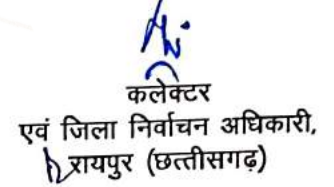 कलेक्टर
एवं जिला निर्वाचन अधिकारी,
रायपुर (छत्तीसगढ़)